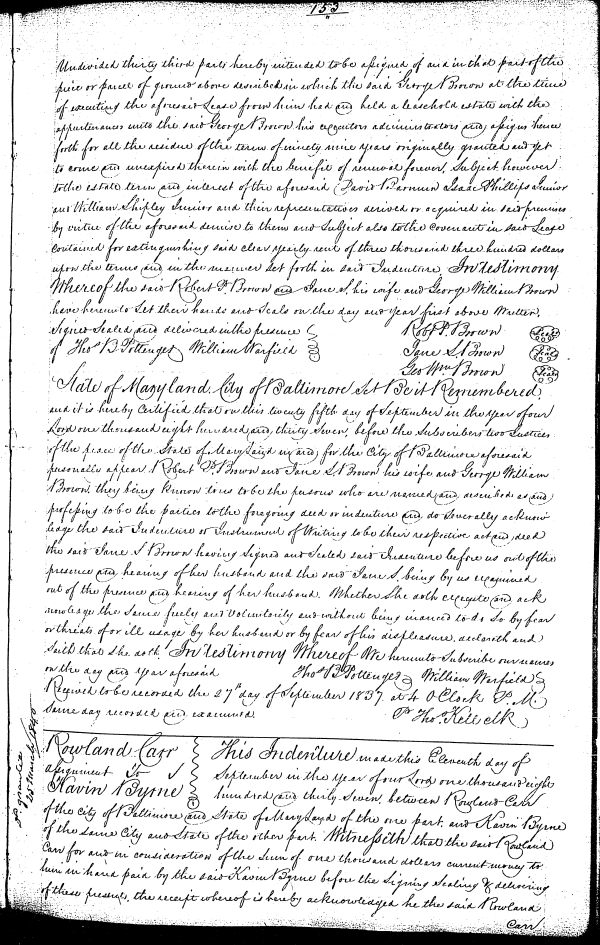 153
Undivided thirty third parts hereby intended to be assigned of and in that part of the
piece or parcel of ground above described in which the said George N Brown at the time
of executing the aforesaid Lease from him had and held a leasehold estate with the
appurtenances unto the said George N Brown his executors administrators and assigns hence
forth for all the residue of the term of ninety nine years originally granted and yet
to come and unexpired therein with the benefit of renewal forever, Subject however
to the estate term and interest of the aforesaid David Barnum Isaac Phillips Junior
and William Shipley Junior and their representatives derived or acquired in said premises
by virtue of the aforesaid demise to them and Subject also to the Covenant in said Lease
contained for extinguishing said clear yearly rent of three thousand three hundred dollars
upon the terms and in the manner set forth in said Indenture In testimony
Whereof the said Robert P. Brown and Jane S. his wife and George William Brown
have hereunto Set their hands and Seals on the day and year first above Written,
Signed Sealed and delivered in the presence Robt P. Brown Seal
of Thos B Pottenger William Warfield Jane S. Brown Seal
Geo Wm Brown Seal
State of Maryland, City of Baltimore Sct Be it Remembered,
and it is hereby Certified that on this twenty fifth day of September in the year of our
Lord one thousand eight hundred and thirty Seven, before the Subscribers two Justices
of the peace of the State of Maryland in and for the City of Baltimore aforesaid
personally appear Robert P. Brown and Jane S. Brown his wife and George William
Brown, they being known to us to be the persons who are named and described as and
professing to be the parties to the foregoing deed or indenture and do Severally acknow
ledge the said Indenture or Instrument of Writing to be their respective act and deed
the said Jane S Brown having Signed and Sealed said Indenture before us out of the
presence and hearing of her husband and the said Jane S, being by us examined
out of the presence and hearing of her husband. Whether She doth execute and ack
nowledge the Same freely and voluntarily and without being induced to do So by fear
or threats of or ill usage by her husband or by fear of his displeasure, declareth and
Saith that she doth In testimony Whereof We hereunto Subscribe our names
on the day and year aforesaid Thos B Pottenger William Warfield
Received to be recorded the 27th day of September 1837 at 4 O Clock P. M.
Same day recorded and examined Pr Thos Kell clk
Rowland Carr
assignment to
Kavin Byrne
This Indenture made this Eleventh day of
September in the year of our Lord one thousand eight
hundred and thirty Seven, between Rowland Carr
of the city of Baltimore and State of Maryland of the one part, and Kavin Byrne
of the same City and State of the other part. Witnesseth that the said Rowland
Carr for and in consideration of the Sum of one thousand dollars current money to
him in hand paid by the said Kavin Byrne before the Signing Sealing & delivering
of these presents, the receipt whereof is hereby acknowledged he the said Rowland
Carr